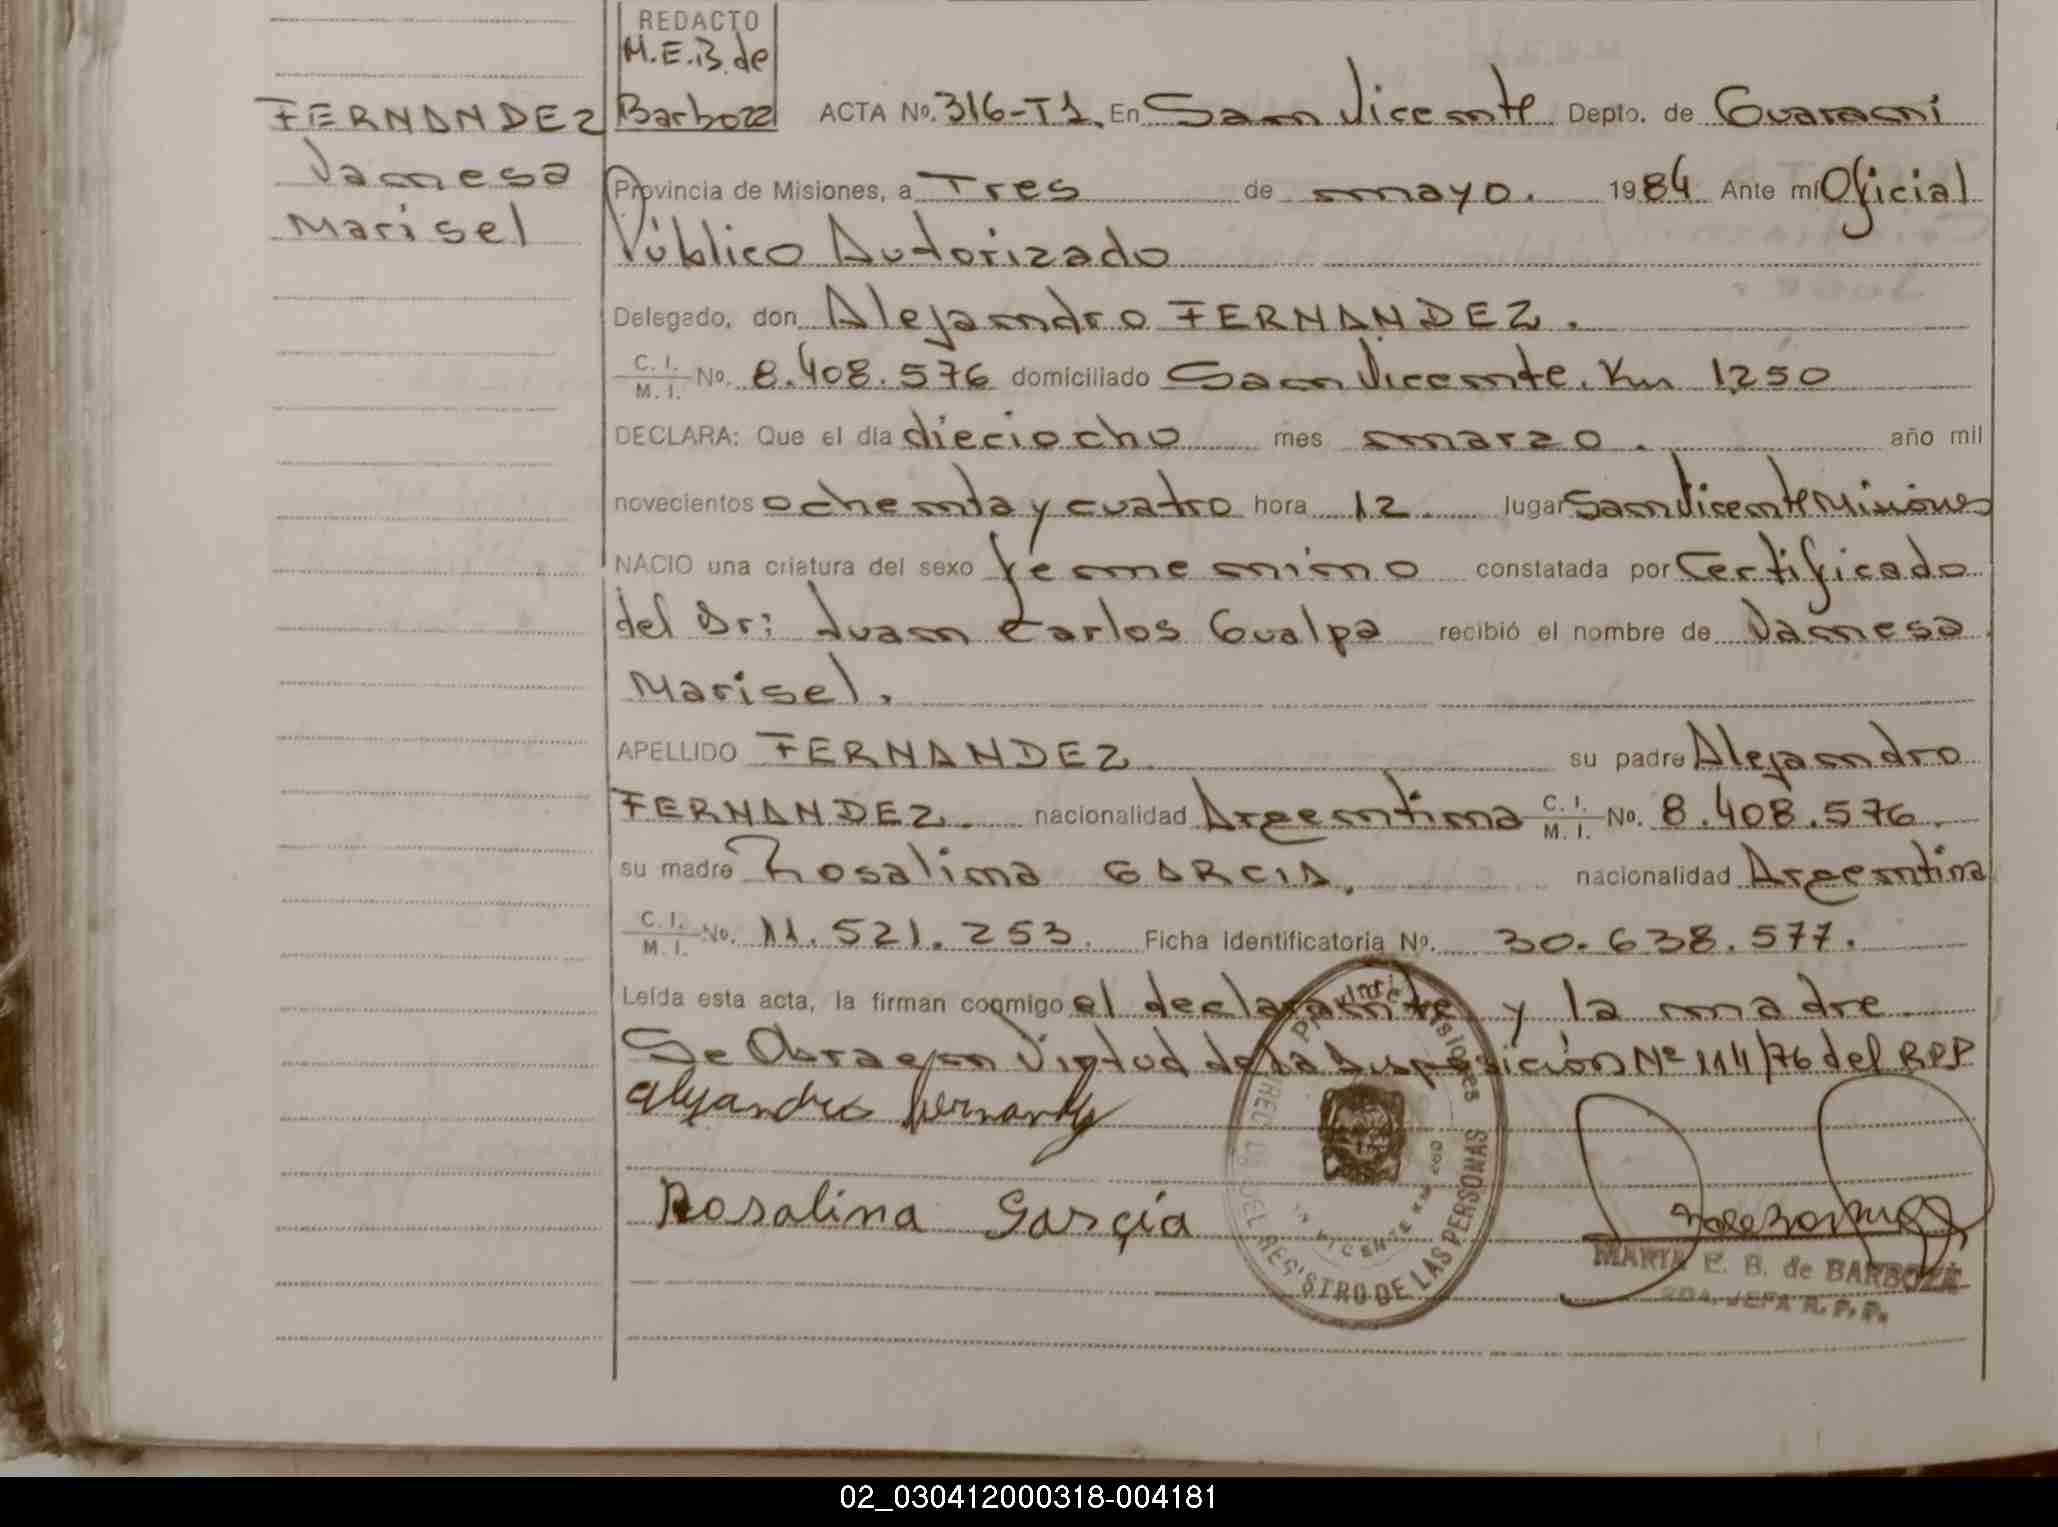 REDACTO
M.E.B. de
Barboza
FERNANDEZ
Vanesa
Marisel
ACTA No. 316-T1. En San Vicente Depto. de Guarani
Provincia de Misiones, a Tres de mayo. 1984 Ante mí Oficial
Público Autorizado
Delegado, don Alejandro FERNANDEZ.
C. I. / M. I. No. 8.408.576 domiciliado San Vicente. Km 1250
DECLARA: Que el día dieciocho mes marzo. año mil
novecientos ochenta y cuatro hora 12. lugar San Vicente Misiones
NACIO una criatura del sexo femenino constatada por Certificado
del Dr: Juan Carlos Gualpa recibió el nombre de Vanesa
Marisel.
APELLIDO FERNANDEZ su padre Alejandro
FERNANDEZ. nacionalidad Argentina C. I. / M. I. No. 8.408.576.
su madre Rosalina GARCIA. nacionalidad Argentina
C. I. / M. I. No. 11.521.253. Ficha identificatoria No. 30.638.577.
Leída esta acta, la firman conmigo el declarante y la madre
Se Obra en Virtud de la Disposición Nº 114/76 del RPP
Alejandro Fernandez
Rosalina Garcia
Misiones
DEL REGISTRO DE LAS PERSONAS
MARIA E. B. de BARBOZA
JEFA R. P. P.
02_030412000318-004181